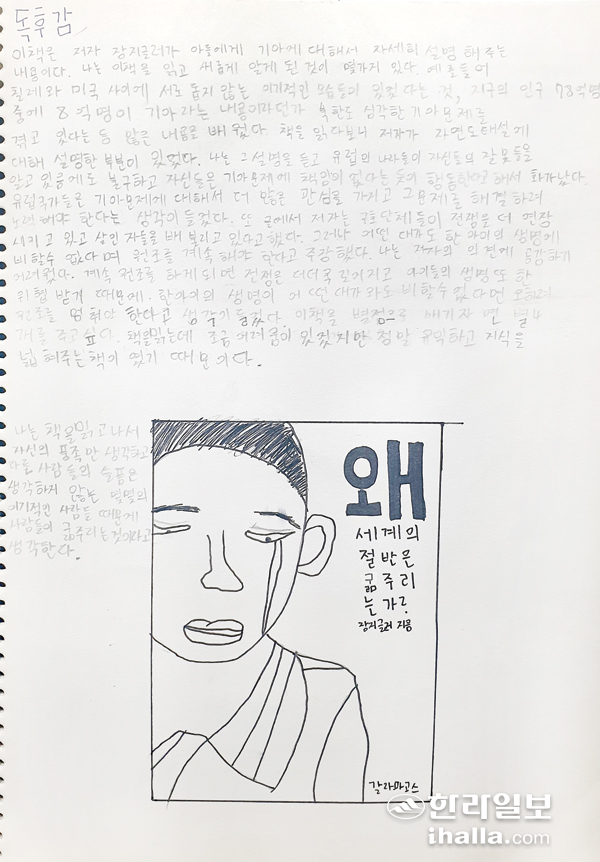 독후감
이책은 저자 장지글러가 아들에게 기아에 대해서 자세히 설명 해주는
내용이다. 나는 이책을 읽고 새롭게 알게 된 것이 몇가지 있다. 예를들어
칠레와 미국 사이에 서로 돕지 않는 이기적인 모습들이 있었다는 것, 지구의 인구 78억명
중에 8억명이 기아라는 내용이라던가 북한도 심각한 기아문제를
겪고 있다는 등 많은 내용을 배웠다. 책을 읽다보니 저자가 자연도태설에
대해 설명한 부분이 있었다. 나는 그 설명을 듣고 유럽의 나라들이 자신들의 잘못들을
알고 있음에도 불구하고 자신들은 기아문제에 책임이 없다는 듯이 행동한 해서 화가났다.
유럽국가들은 기아문제에 대해서 더 많은 관심을 가지고 그 문제를 해결하려
노력해야 한다는 생각이 들었다. 또 글에서 저자는 구호단체들이 전쟁을 더 연장
시키고 있고 상인 자들을 배불리고 있다고 했다. 그러나 어떤 대가도 한 아이의 생명에
비할수 없다며 원조를 계속 해야 한다고 주장했다. 나는 저자의 의견에 공감하기
어려웠다. 계속 원조를 하게되면 전쟁은 더더욱 길어지고 아이들의 생명 또한
위협 받기 때문에. 한아이의 생명이 어떤 대가와도 비할수 없다면 오히려
원조를 멈춰야 한다고 생각이 들었다. 이책을 별점으로 매기자면 별 4
개를 주고 싶다. 책을읽는데 조금 어려움이 있었지만 정말 유익하고 지식을
넓혀주는 책이 였기 때문이다.
나는 책을 읽고나서
자신의 풍족만 생각하고
다른 사람들의 슬픔은
생각하지 않는 몇몇의
이기적인 사람들 때문에
사람들이 굶주리는것이라고
생각한다.
왜
세계의
절반은
굶주리
는가?
장지글러 지음
갈라파고스
한라일보
ihalla.com